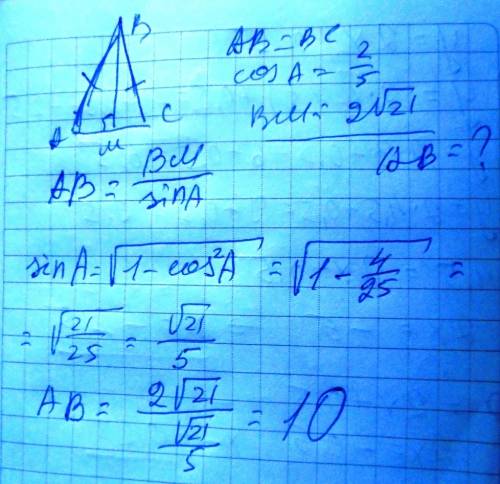 B
A
M
C
AB = BC
cos A = 2/5
BM = 2√21
AB = ?
AB = BM/sin A
sin A = √(1 - cos²A) = √(1 - 4/25) =
= √(21/25) = √21/5
AB = 2√21/(√21/5) = 10